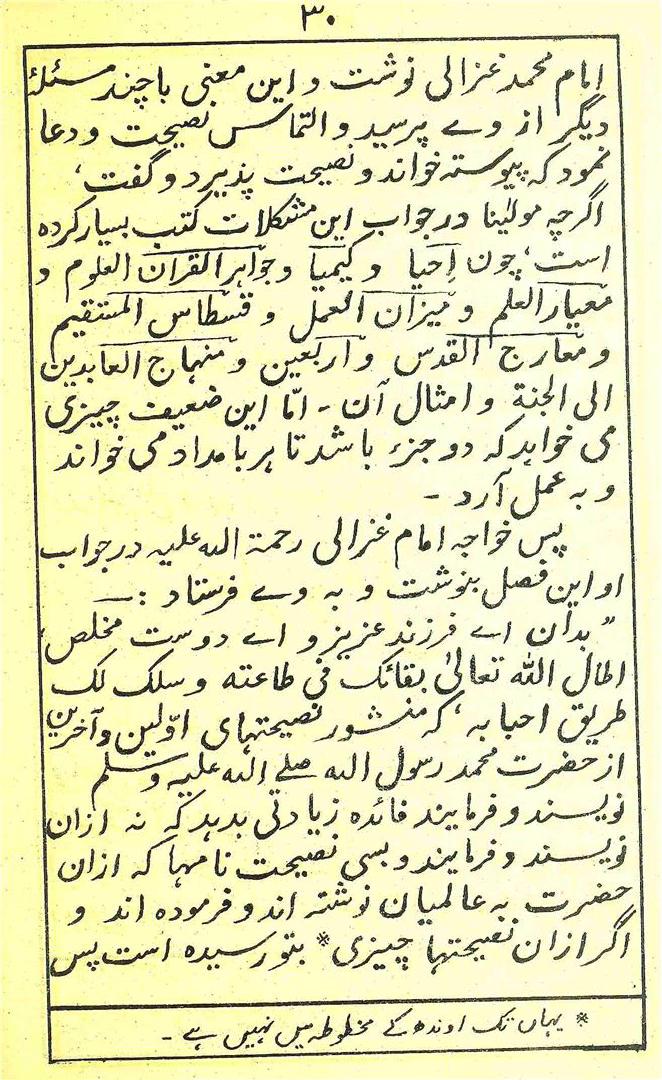 ۳۰
امام محمد غزالی نوشت و این معنی با چند مسئلۂ
دیگر از وے پرسید و التماس نصیحت و دعا
نمود کہ پیوستہ خواند و نصیحت پذیرد و گفت،
اگرچہ مولینا در جواب این مشکلات کتب بسیار کردہ
است، چون اِحیا و کیمیا و جواہر القرآن العلوم و
معیار العلم و میزان العمل و قسطاس المستقیم
و معارج القدس و اربعین و منہاج العابدین
الی الجنة و امثال آن - امّا این ضعیف چیزی
می خواہد کہ دو جزء باشد تا ہر بامداد می خواند
و بہ عمل آرد -
پس خواجہ امام غزالی رحمة اللہ علیہ در جواب
او این فصل بنوشت و بہ وے فرستاد :—
" بدان اے فرزند عزیز و اے دوست مخلص،
اطال اللّٰہ تعالیٰ بقائک فی طاعتہ و سلک لک
طریق احبابہ، کہ منشور نصیحتہای اوّلین و آخرین
از حضرت محمد رسول اللہ صلے اللہ علیہ وسلم
نویسند و فرمایند فائدہ زیادتی بدہد کہ نہ ازان
نویسند و فرمایند و بسی نصیحت نامہا کہ ازان
حضرت بہ عالمیان نوشتہ اند و فرمودہ اند و
اگر ازان نصیحتہا چیزی * بتو رسیدہ است پس
* یہاں تک اوندھ کے مخطوطہ میں نہیں ہے -